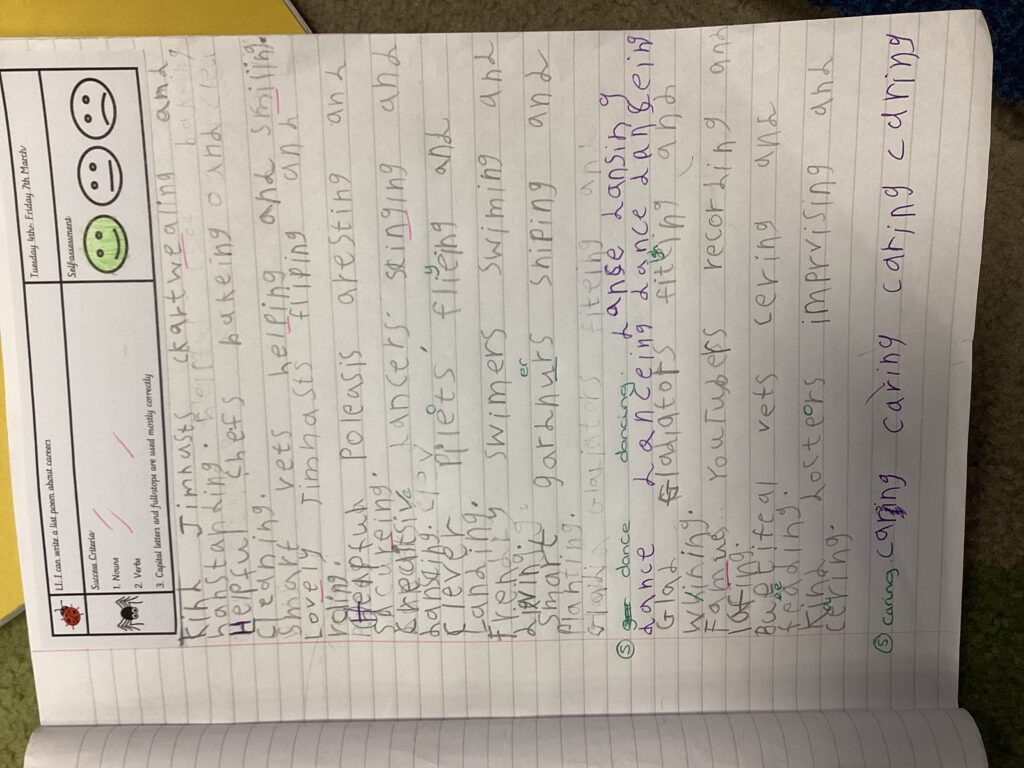 Tuesday 4th- Friday 7th March
L.I. I can write a list poem about careers
Self-assessment
Success Criteria
1. Nouns
2. Verbs
3. Capital letters and fullstops are used mostly correctly
Kind Jimnasts ckartwealing and
hanstanding.
Helpful chefs bakeing and
Cleaning.
Smart vets helping and smiling.
Lovely Jimnasts fliping and
roling.
Poleasis aresting and
Scureing.
dancers singing and
dansing.
Clever Pilets flieng and
Landing.
Frendly swimers swiming and
diving.
Smart garhnurs sniping and
er
Planting.
Gladiators fiteing and
dance dansing
S dance dancing.
dance danceing dance dangeing
Glad Gladiators fiteing and
Wining.
Famus YouTubers recording and
Buetiteal vets cering and
feading.
Kind dosters imprising and
cering.
S caring caring caring caring caring